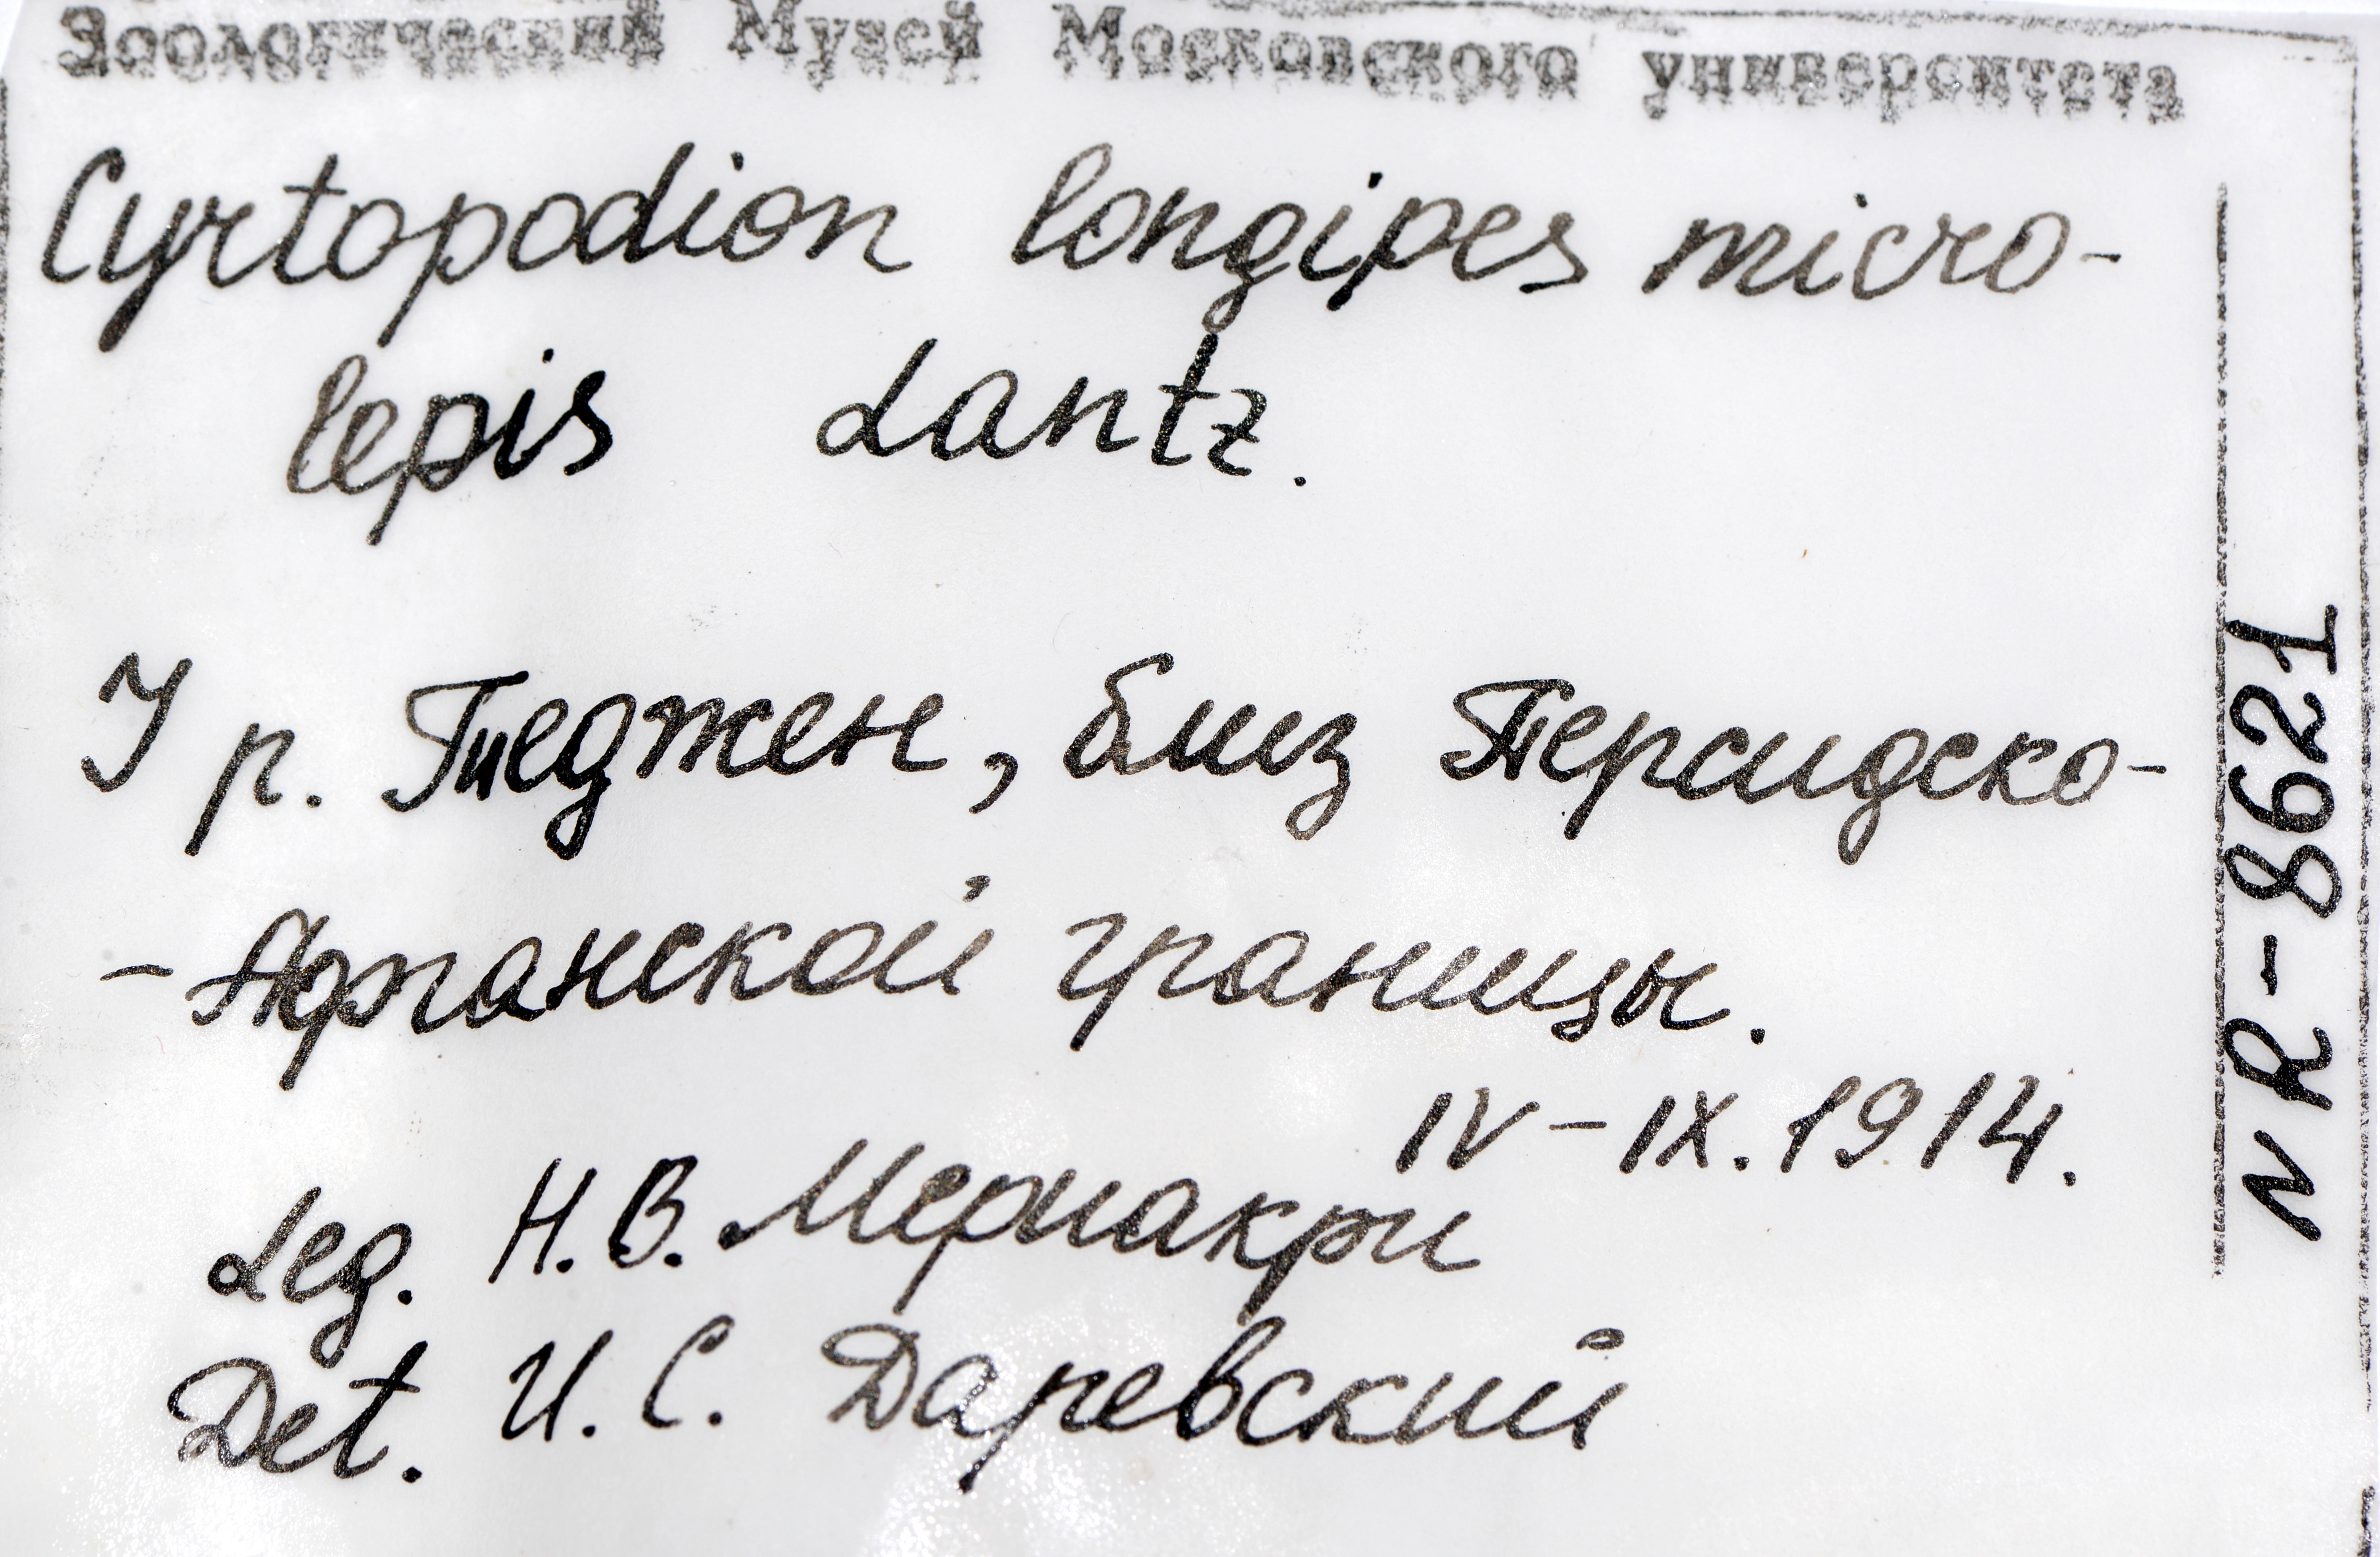 Зоологический Музей Московского университета
Cyrtopodion longipes micro-
lepis Lantz.
У р. Теджен, близ Персидско-
-Афганской границы.
IV-IX.1914.
Leg. Н.В. Мериакри
Det. И.С. Даревский
N R-8621